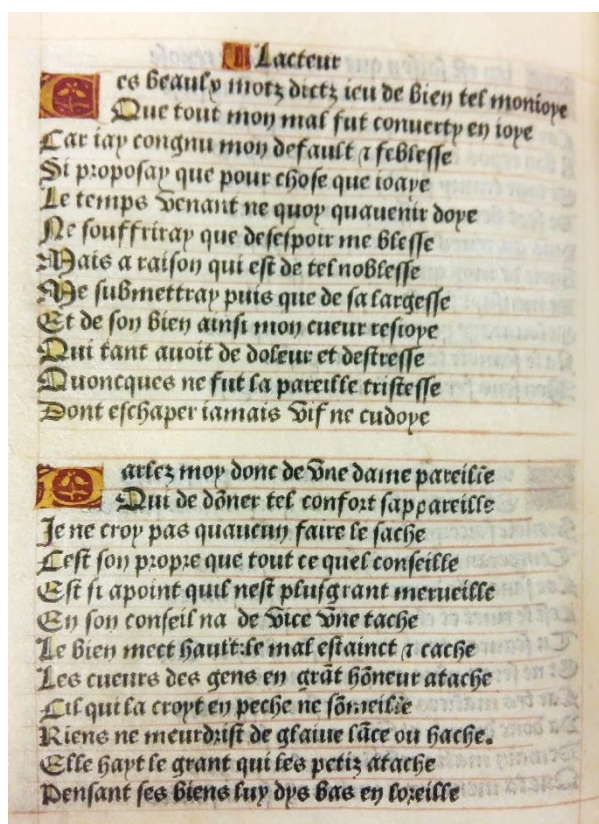 Lacteur
Ces beaulx motz dictz ieu de bien tel monioye
Que tout mon mal fut conuerty en ioye
Car iay congnu mon default ⁊ feblesse
Si proposay que pour chose que ioaye
Le temps venant ne quoy quauenir doye
Ne souffriray que desespoir me blesse
Mais a raison qui est de tel noblesse
Me submettray puis que de sa largesse
Et de son bien ainsi mon cueur resioye
Qui tant auoit de doleur et destresse
Quoncques ne fut la pareille tristesse
Dont eschaper iamais vif ne cudoye
arlez moy donc de vne dame pareille
Qui de dōner tel confort sappareille
Je ne croy pas quaucun faire le sache
Cest son propre que tout ce quel conseille
Est si apoint quil nest plusgrant merueille
En son conseil na de vice vne tache
Le bien mect hault:le mal estainct ⁊ cache
Les cueurs des gens en grāt hōneur atache
Cil qui la croyt en peche ne sōmeille
Riens ne meurdrist de glaiue lāce ou hache.
Elle hayt le grant qui les petiz atache
Pensant ses biens luy dys bas en loreille